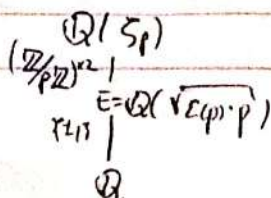 ℚ(ζp)
(ℤ/pℤ)^×2
E=ℚ(√ε(p)·p)
{±1}
ℚ